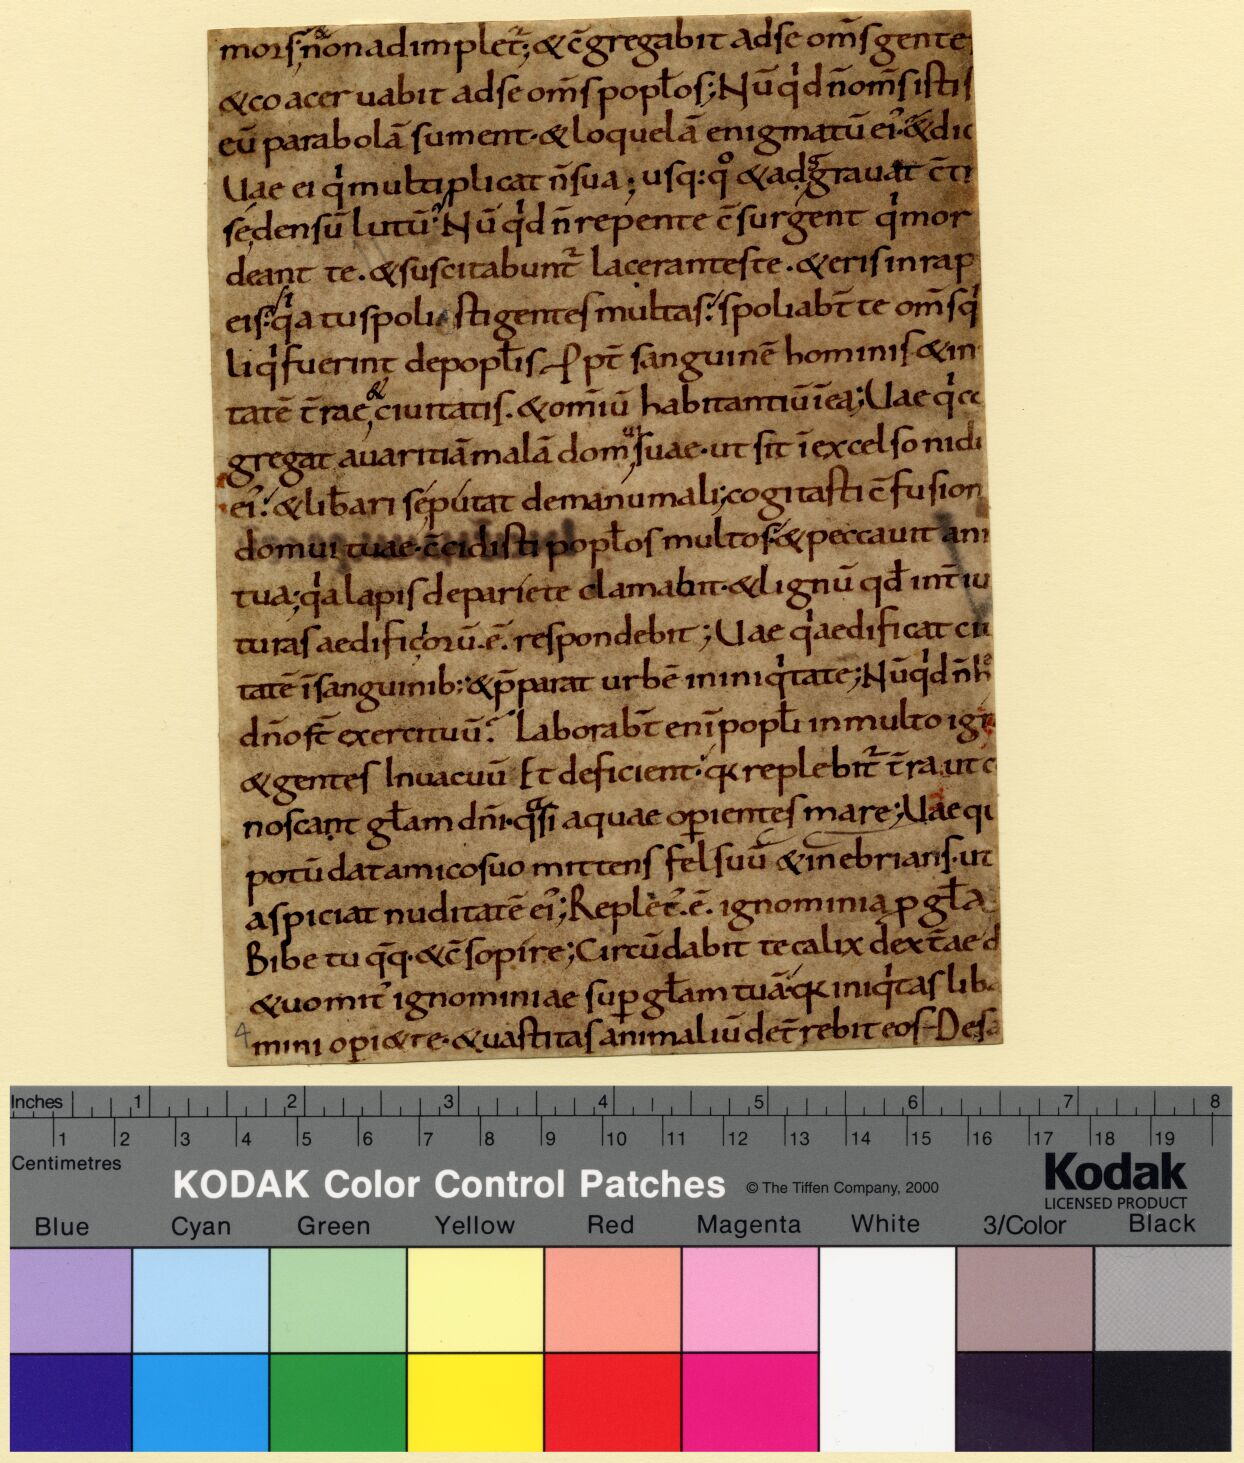 morſ; & n̄on adimplet᷑; & c̄gregabit adſe om̄ſ gente
& coaceruabit adſe om̄ſ popłoſ; Nū qͥd n̄ om̄ſ iſti ſ
eū parabolā ſument· & loquelā enigmatū ei᾽· & dic
Uae ei qͥ multiplicat n̄ ſua; uſq: qͦ & adgͣrauat c̄t
ſe denſū lutū? Nū qͥd n̄ repente c̄ſurgent qͥ mor
deant te. & ſuſcitabunt᷑ laceranteſ te. & eriſ in rap
eiſ: qͥa tu ſpoliaſti genteſ multaſ: ſpoliabt̄ te om̄ſ qͥ
liqͥ fuerint de popłis ꝓpt̄ ſanguinē hominiſ & in
tatē t̄rae & ciuitatiſ. & om̄iū habitantiū ī ea; Uae qͥ cc
gregat auaritiā malā dom᾽ ſuae· ut ſit ī excelſo nid
ei᾽: & liƀari ſe putat de manu mali; cogitaſti c̄fuſion
domui tuae· c̄cidiſti popłoſ multoſ· & peccauit ani
tua; qͥa lapiſ de pariete clamabit· & lignū qđ int̄ iu
turaſ aedificͥorū .ē. reſpondebit; Uae qͥ aedificat ciu
tatē ī ſanguinib: & p̄parat urbē in iniqͥtate; Nū qͥd n̄ hͣ
dn̄o ſt̄ exercituū? Laborabt̄ enī popłi in multo ig
& genteſ In uacuū Et deficient· qꝛ replebit᷑ t̄ra ut c
noſcant gł̄am dn̄i· qͣſi aquae operienteſ mare; Uae qu
potū dat amico ſuo mittenſ fel ſuū & inebrianſ· ut
aſpiciat nuditatē ei᾽; Replet᷑ .ē. ignominia ꝓ gł̄a
Bibe tu q̄q· & c̄ſopire; Circūdabit te calix dext̄ae d
& uomit᾽ ignominiae ſuꝑ gł̄am tuā· qꝛ iniqͥtaſ lib
4 mini operi&te· & uaſtitaſ animaliū det̄rebit eoſ Deſa
Inches 1 2 3 4 5 6 7 8
1 2 3 4 5 6 7 8 9 10 11 12 13 14 15 16 17 18 19
Centimetres
KODAK Color Control Patches © The Tiffen Company, 2000 Kodak
LICENSED PRODUCT
Blue Cyan Green Yellow Red Magenta White 3/Color Black